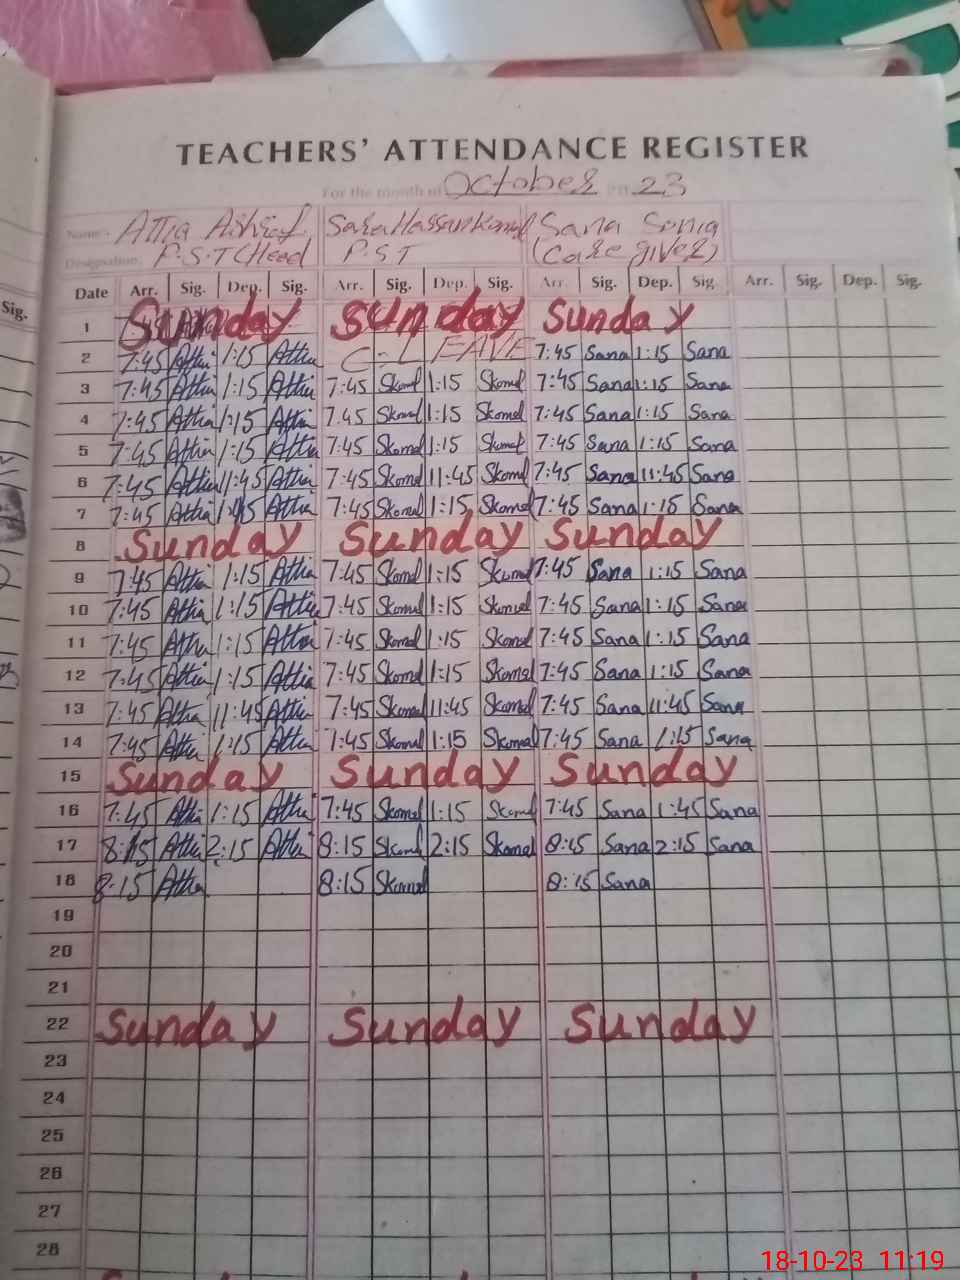 TEACHERS' ATTENDANCE REGISTER
For the month of October 23
Name: Attia Ashraf Sara Hassan Komal Sana Sonia
Designation. P.S.T (Head P.S.T (Care giver)
Sig. Date Arr. Sig. Dep. Sig. Arr. Sig. Dep. Sig. Arr. Sig. Dep. Sig. Arr. Sig. Dep. Sig.
1 Sunday Sunday Sunday
2 7:45 Attia 1:15 Attia C-LEAVE 7:45 Sana 1:15 Sana
3 7:45 Attia 1:15 Attia 7:45 Skomal 1:15 Skomal 7:45 Sana 1:15 Sana
4 7:45 Attia 1:15 Attia 7.45 Skomal 1:15 Skomal 7:45 Sana 1:15 Sana
5 7:45 Attia 1:15 Attia 7:45 Skomal 1:15 Skomal 7:45 Sana 1:15 Sana
6 7:45 Attia 11:45 Attia 7:45 Skomal 11:45 Skomal 7:45 Sana 11:45 Sana
7 7:45 Attia Attia 7:45 Skomal 1:15 Skomal 7:45 Sana 1:15 Sana
8 Sunday Sunday Sunday
9 7:45 Attia 1:15 Attia 7:45 Skomal 1:15 Skomal 7:45 Sana 1:15 Sana
10 7:45 Attia 1:15 Attia 7:45 Skomal 1:15 Skomal 7:45 Sana 1:15 Sana
11 7:45 Attia 1:15 Attia 7:45 Skomal 1:15 Skomal 7:45 Sana 1:15 Sana
12 7:45 Attia 1:15 Attia 7:45 Skomal 1:15 Skomal 7:45 Sana 1:15 Sana
13 7:45 Attia 11:45 Attia 7:45 Skomal 11:45 Skomal 7:45 Sana 11:45 Sana
14 7:45 Attia 1:15 Attia 7:45 Skomal 1:15 Skomal 7:45 Sana 1:15 Sana
15 Sunday Sunday Sunday
16 7:45 Attia 1:15 Attia 7:45 Skomal 1:15 Skomal 7:45 Sana 1:45 Sana
17 8:15 Attia 2:15 Attia 8:15 Skomal 2:15 Skomal 8:15 Sana 2:15 Sana
18 8:15 Attia 8:15 Skomal 8:15 Sana
19
20
21
22 Sunday Sunday Sunday
23
24
25
26
27
28
18-10-23 11:19